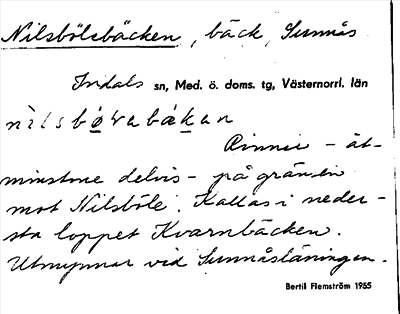 Nilsbölebäcken, bäck, Sunnås
Indals sn, Med. ö. doms. tg, Västernorrl. län
Rinner - åt-
minstone delvis - på gränsen
mot Nilsböle. Kallas i neder-
sta loppet Kvarnbäcken.
Utmynnar vid Sunnåsläningen.
Bertil Flemström 1955